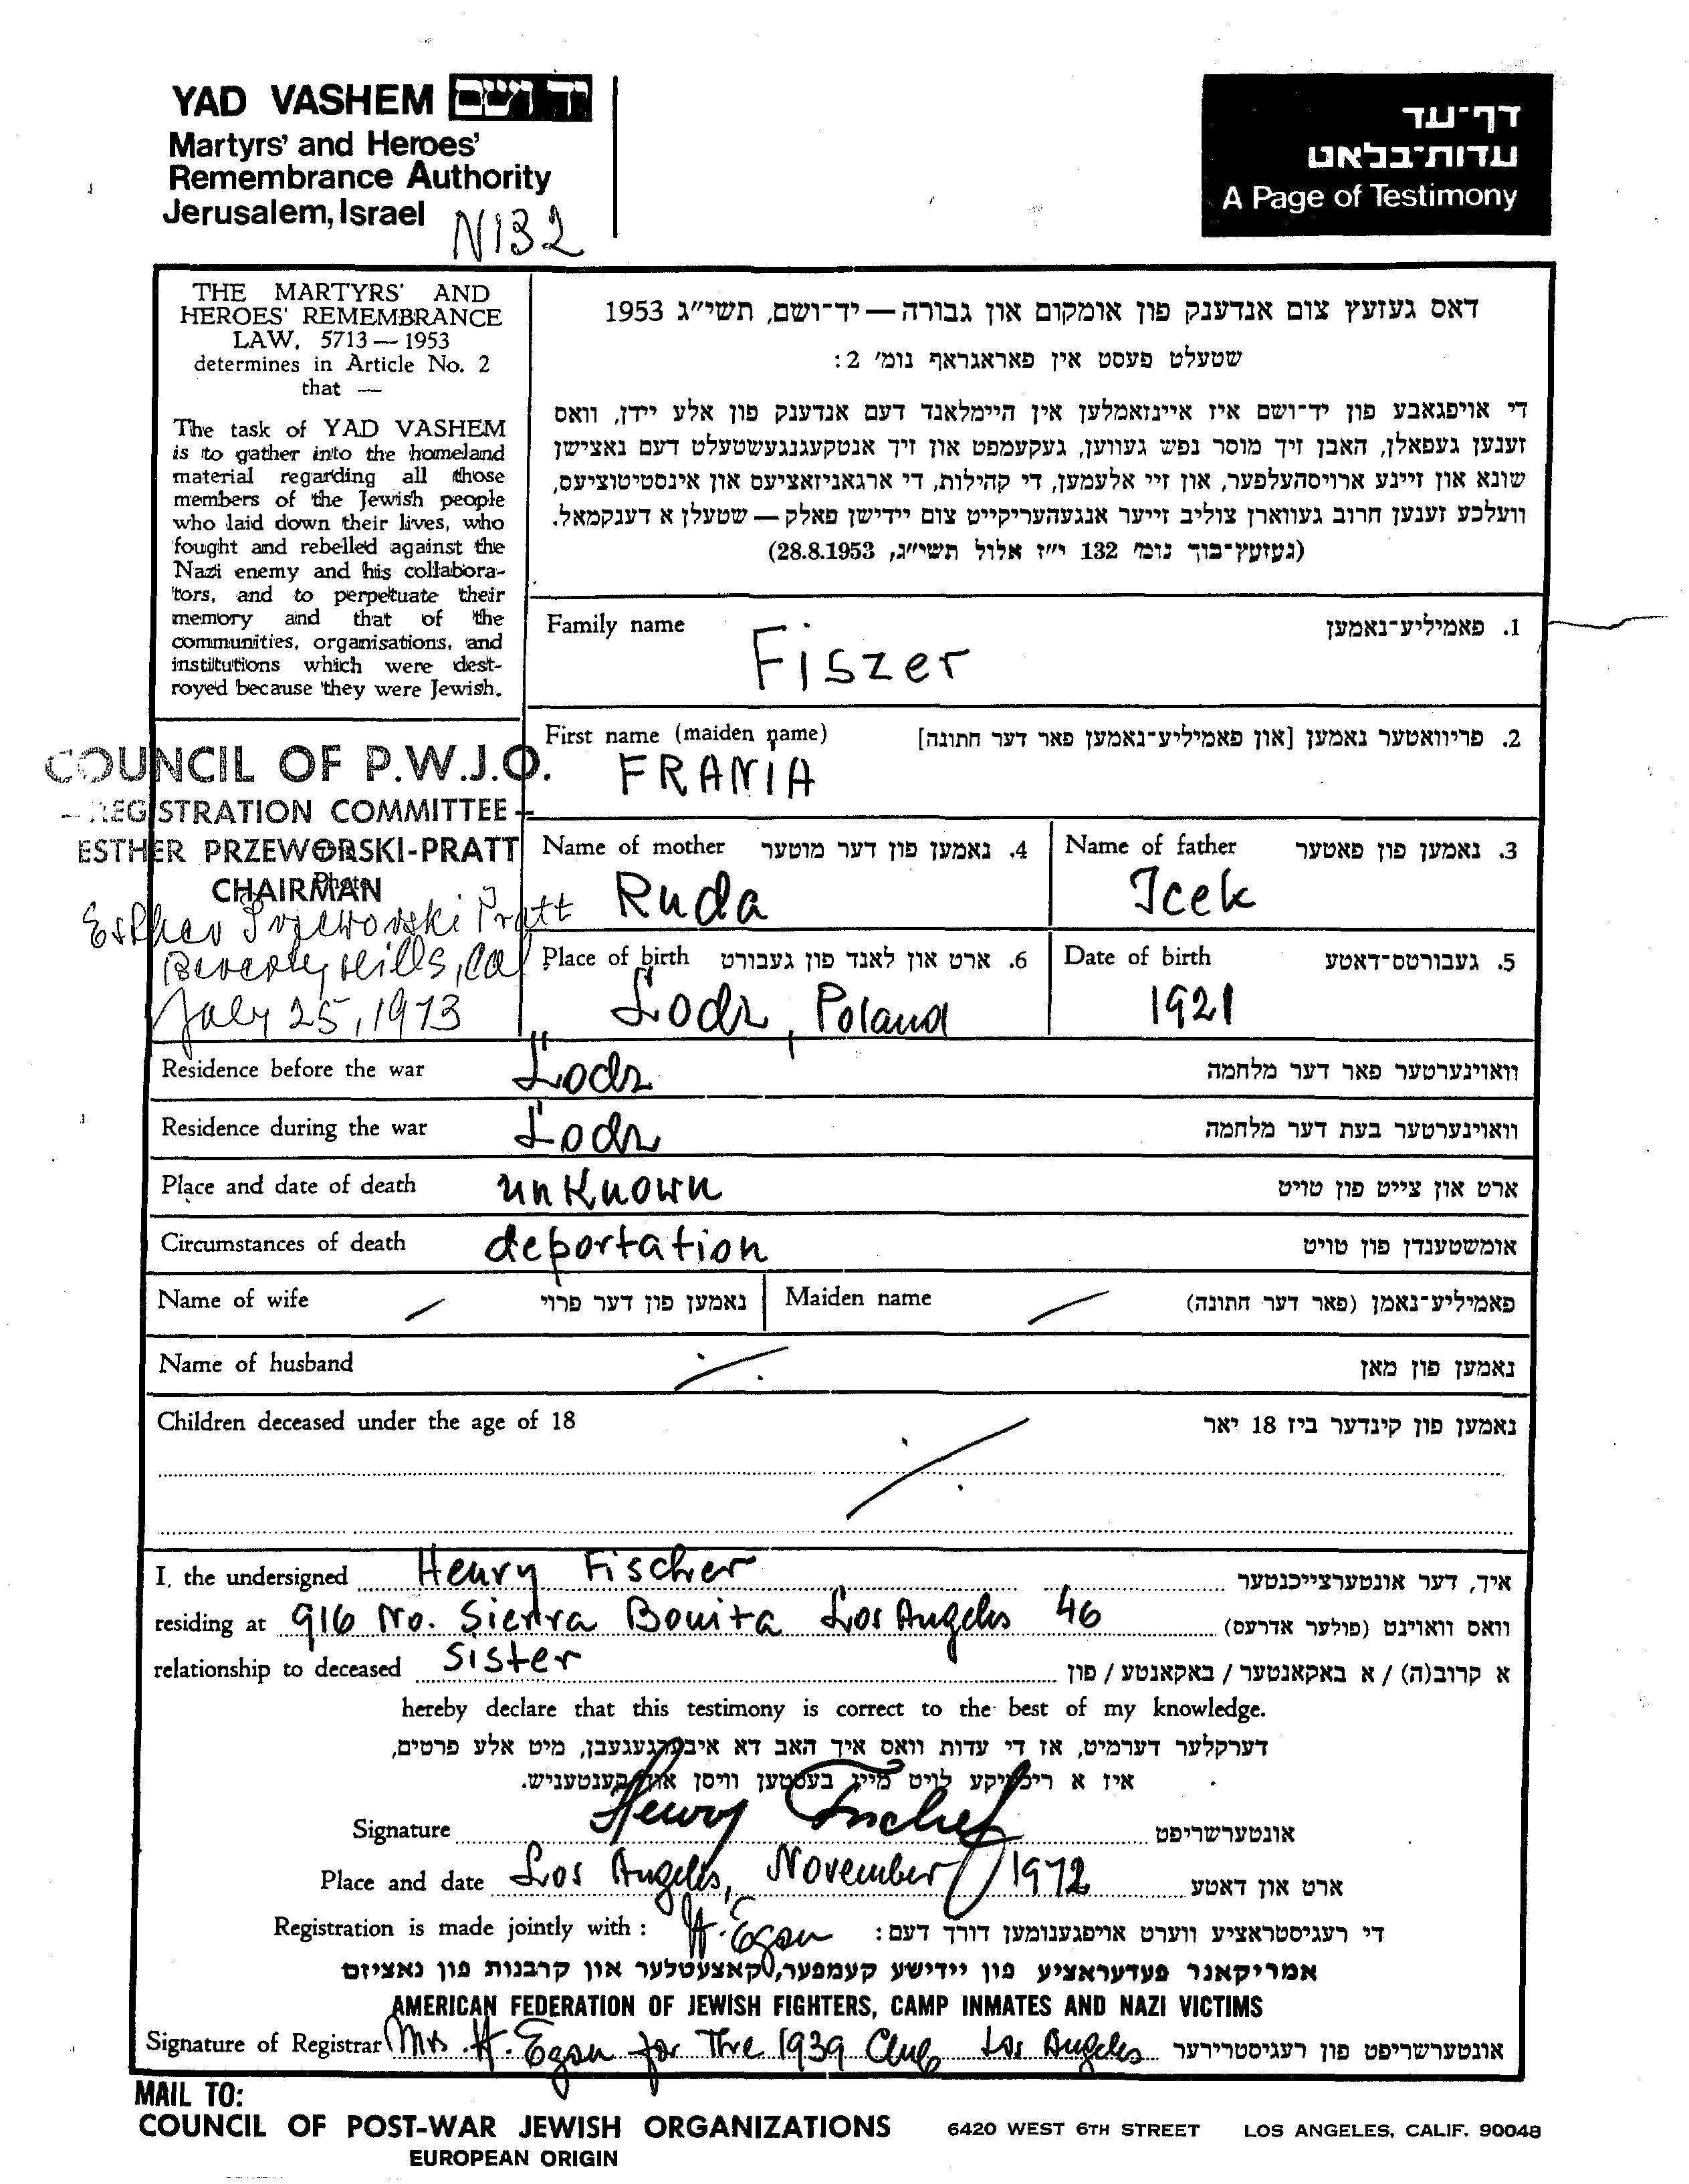 YAD VASHEM יד ושם
Martyrs' and Heroes'
Remembrance Authority
Jerusalem, Israel
N132
דף־עד
עדות־בלאט
A Page of Testimony
THE MARTYRS' AND
HEROES' REMEMBRANCE
LAW, 5713 — 1953
determines in Article No. 2
that —
The task of YAD VASHEM
is to gather into the homeland
material regarding all those
members of the Jewish people
who laid down their lives, who
fought and rebelled against the
Nazi enemy and his collabora-
tors, and to perpetuate their
memory and that of the
communities, organisations, and
institutions which were dest-
royed because they were Jewish.
דאס געזעץ צום אנדענק פון אומקום און גבורה — יד־ושם, תשי״ג 1953
שטעלט פעסט אין פאראגראף נומ׳ 2:
די אויפגאבע פון יד־ושם איז איינזאמלען אין היימלאנד דעם אנדענק פון אלע יידן, וואס
זענען געפאלן, האבן זיך מוסר נפש געווען, געקעמפט און זיך אנטקעגנגעשטעלט דעם נאצישן
שונא און זיינע ארויסהעלפער, און זיי אלעמען, די קהילות, די ארגאניזאציעס און אינסטיטוציעס,
וועלכע זענען חרוב געווארן צוליב זייער אנגעהעריקייט צום יידישן פאלק — שטעלן א דענקמאל.
(געזעץ־בוך נומ׳ 132 י״ז אלול תשי״ג, 28.8.1953)
COUNCIL OF P.W.J.O.
– REGISTRATION COMMITTEE –
ESTHER PRZEWORSKI-PRATT
CHAIRMAN
Photo
Esther Przeworski Pratt
Beverly Hills, Cal
July 25, 1973
Family name Fiszer 1. פאמיליע־נאמען
First name (maiden name) FRANIA 2. פריוואטער נאמען [און פאמיליע־נאמען פאר דער חתונה]
Name of mother Ruda 4. נאמען פון דער מוטער
Name of father Icek 3. נאמען פון פאטער
Place of birth Łodz, Poland 6. ארט און לאנד פון געבורט
Date of birth 1921 5. געבורטס־דאטע
Residence before the war Łodz וואוינערטער פאר דער מלחמה
Residence during the war Łodz וואוינערטער בעת דער מלחמה
Place and date of death unknown ארט און צייט פון טויט
Circumstances of death deportation אומשטענדן פון טויט
Name of wife נאמען פון דער פרוי
Maiden name פאמיליע־נאמן (פאר דער חתונה)
Name of husband נאמען פון מאן
Children deceased under the age of 18 נאמען פון קינדער ביז 18 יאר
I, the undersigned Henry Fischer איך, דער אונטערצייכנטער
residing at 916 No. Sierra Bonita Los Angeles 46 וואס וואוינט (פולער אדרעס)
relationship to deceased Sister א קרוב(ה) / א באקאנטער / באקאנטע / פון
hereby declare that this testimony is correct to the best of my knowledge.
דערקלער דערמיט, אז די עדות וואס איך האב דא איבערגעגעבן, מיט אלע פרטים,
איז א ריכטיקע לויט מיין בעסטען וויסן און קענטעניש.
Signature Henry Fischer אונטערשריפט
Place and date Los Angeles, November 1972 ארט און דאטע
Registration is made jointly with : H. Egan די רעגיסטראציע ווערט אויפגענומען דורך דעם:
אמריקאנר פעדעראציע פון יידישע קעמפער, קאצעטלער און קרבנות פון נאציזם
AMERICAN FEDERATION OF JEWISH FIGHTERS, CAMP INMATES AND NAZI VICTIMS
Signature of Registrar Mrs. H. Egan for The 1939 Club Los Angeles אונטערשריפט פון רעגיסטרירער
MAIL TO:
COUNCIL OF POST-WAR JEWISH ORGANIZATIONS 6420 WEST 6TH STREET LOS ANGELES, CALIF. 90048
EUROPEAN ORIGIN